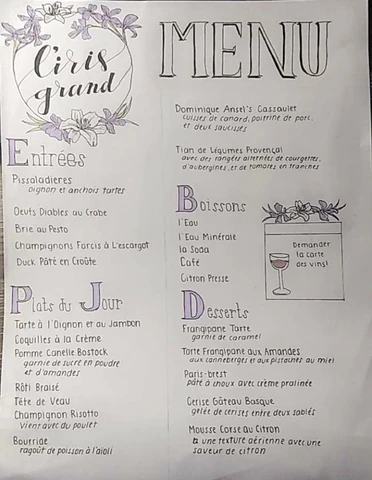 l'iris
grand
MENU
Entrées
Pissaladieres
oignon et anchois tartes
Oeufs Diables au Crabe
Brie au Pesto
Champignons Farcis à L'escargot
Duck Pâté en Croûte
Plats du Jour
Tarte à l'Oignon et au Jambon
Coquilles à la Crème
Pomme Canelle Bostock
garnie de sucre en poudre
et d'amandes
Rôti Braisé
Tête de Veau
Champignon Risotto
vient avec du poulet
Bourride
ragoût de poisson à l'aïoli
Dominique Ansel's Cassoulet
cuisses de canard, poitrine de porc,
et deux saucisses
Tian de Légumes Provençal
avec des rangées alternées de courgettes,
d'aubergines, et de tomates en tranches
Boissons
l'Eau
l'Eau Minérale
la Soda
Café
Citron Presse
Demander
la carte
des vins!
Desserts
Frangipane Tarte
garnie de caramel
Tarte Frangipane aux Amandes
aux canneberges et aux pistaches au miel
Paris-brest
pâte à choux avec crème pralinée
Cerise Gâteau Basque
gelée de cerises entre deux sablés
Mousse Corse au Citron
à une texture aérienne avec une
saveur de citron